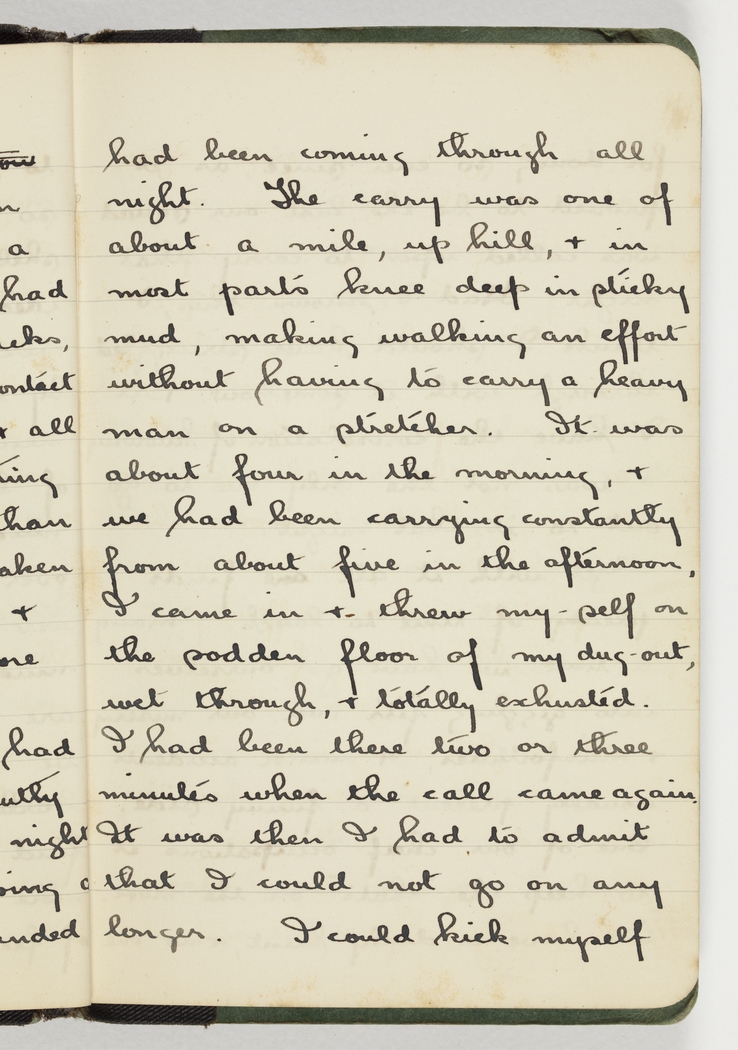 had been coming through all
night. The carry was one of
about a mile, up hill, + in
most parts knee deep in sticky
mud, making walking an effort
without having to carry a heavy
man on a stretcher. It was
about four in the morning, +
we had been carrying constantly
from about five in the afternoon,
I came in + threw my-self on
the sodden floor of my dug-out,
wet through, + totally exhusted.
I had been there two or three
minutes when the call came again.
It was then I had to admit
that I could not go on any
longer. I could kick myself